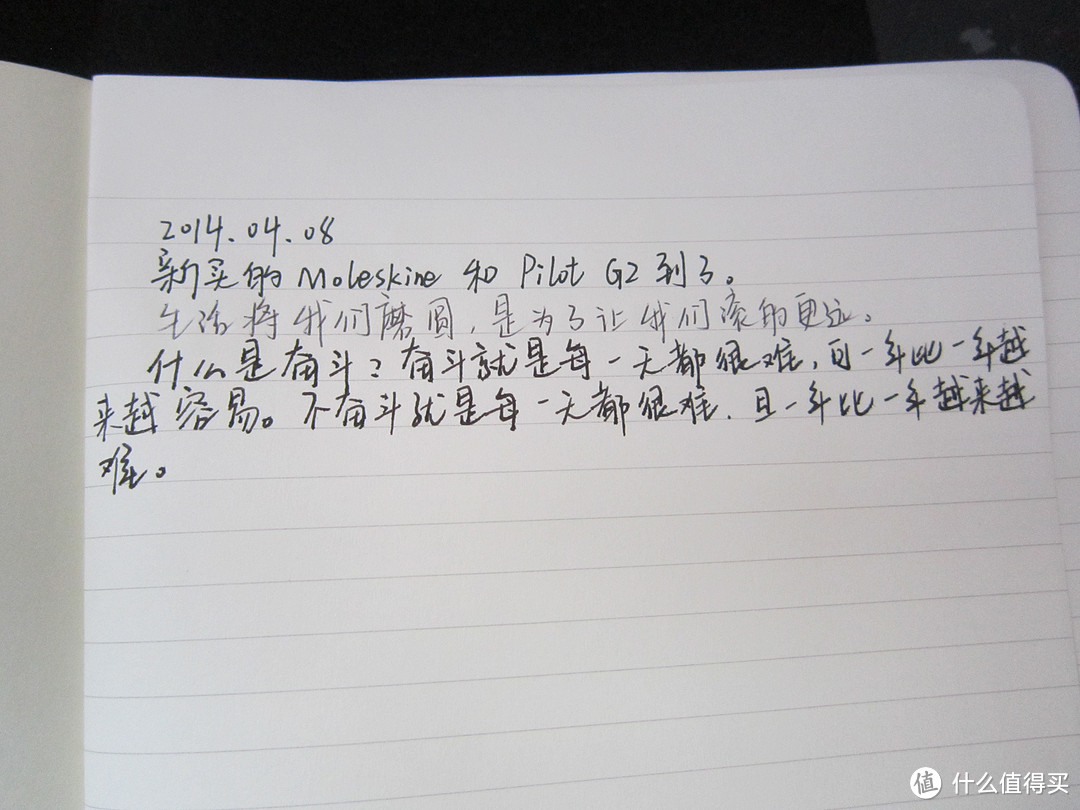 2014.04.08
新买的 Moleskine 和 Pilot G2 到了。
生活将我们磨圆,是为了让我们滚的更远。
什么是奋斗?奋斗就是每一天都很难,且一年比一年越
来越容易。不奋斗就是每一天都很难,且一年比一年越来越
难。
值 什么值得买